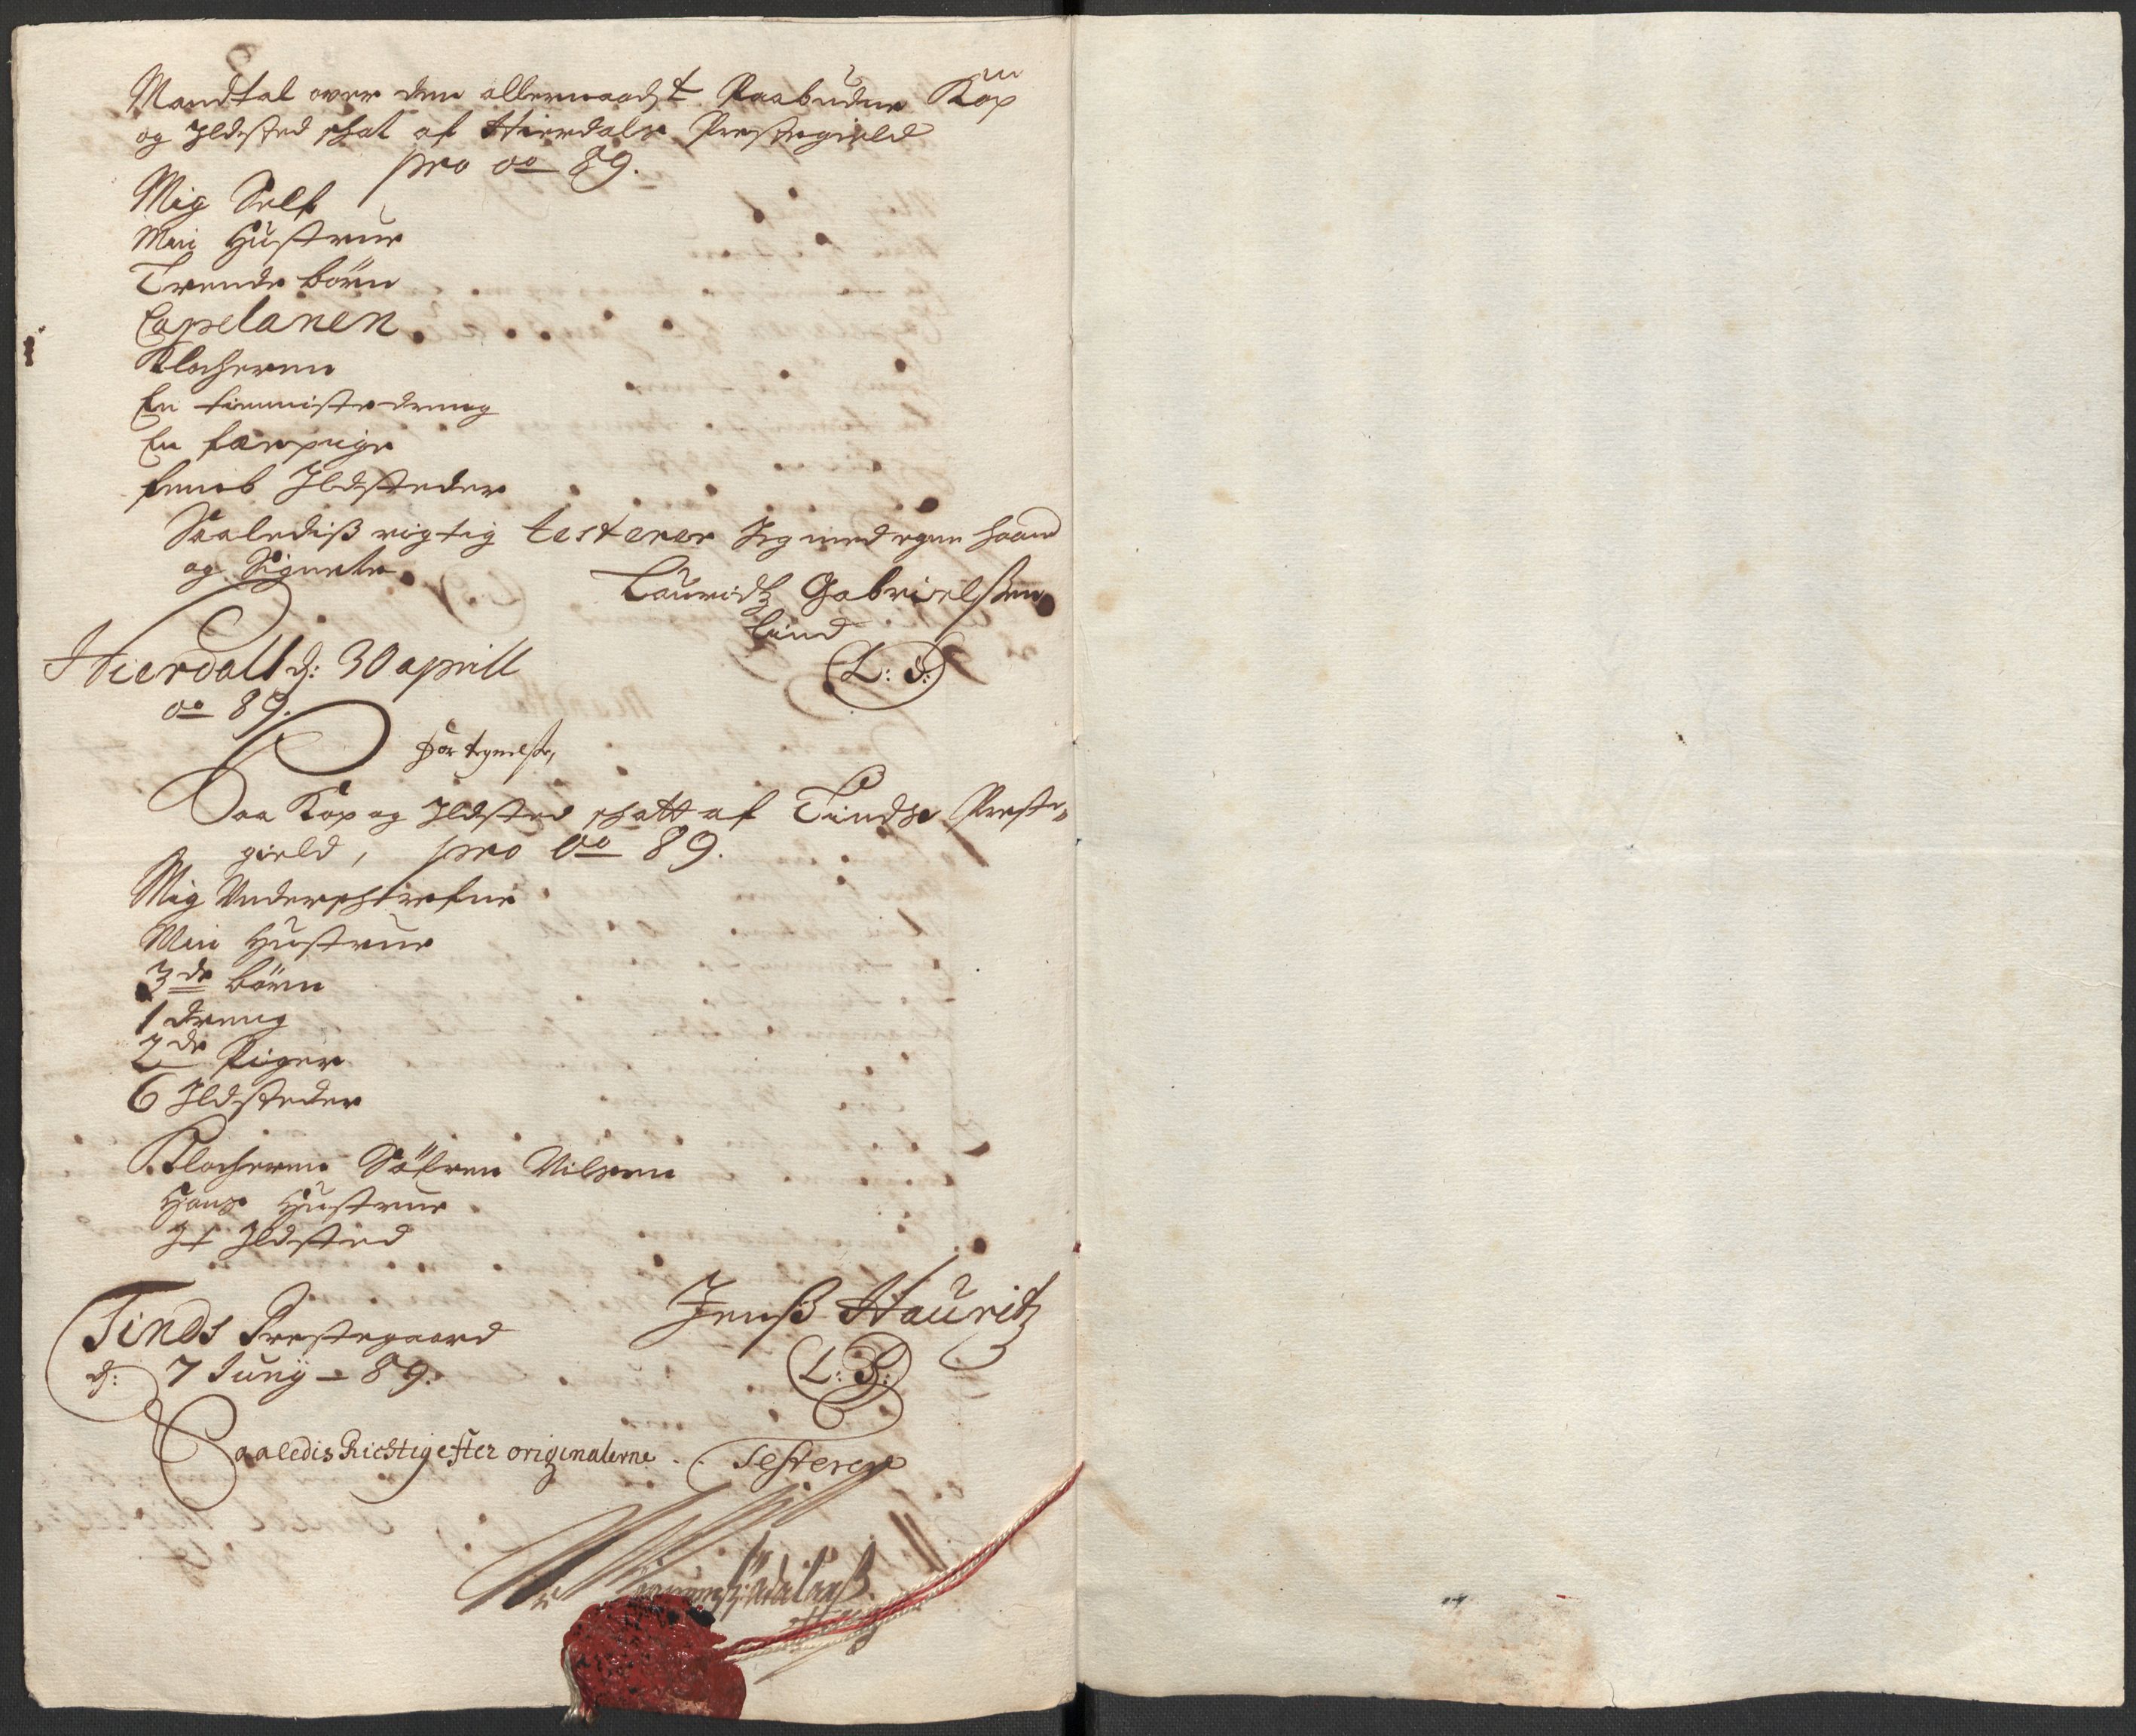 Mandtal over den allernaadst Paabudne Kop
og Ildsted shat af Hierdals Prestegield
pro ao 89.
Mig Self
Min Hustrue
Trende börn
Capelanen
Klocheren
En tienniste dreng
En pige
Ildsteder
Saalediß rigtig testerer Jeg med egen haand
og Signete
Lauridtz Gabrielßen
Lind
Hierdall d: 30 aprill
L: S:
ao 89.
Fortegnelse,
Paa Kop og Ildsted shatt af Tindse Preste-
gield, pro ao 89.
Mig Undershrefne
Min Hustrue
3de börn
1 dreng
2de Piger
6 Ildsteder
Klocheren Söfren Nilsen
Hans Hustrue
It Ildsted
Tinds Prestegaard
Jenß Hauritz
d: 7 Juny - 89.
L: S:
Saaledis Richtig efter originalerne. Testerer